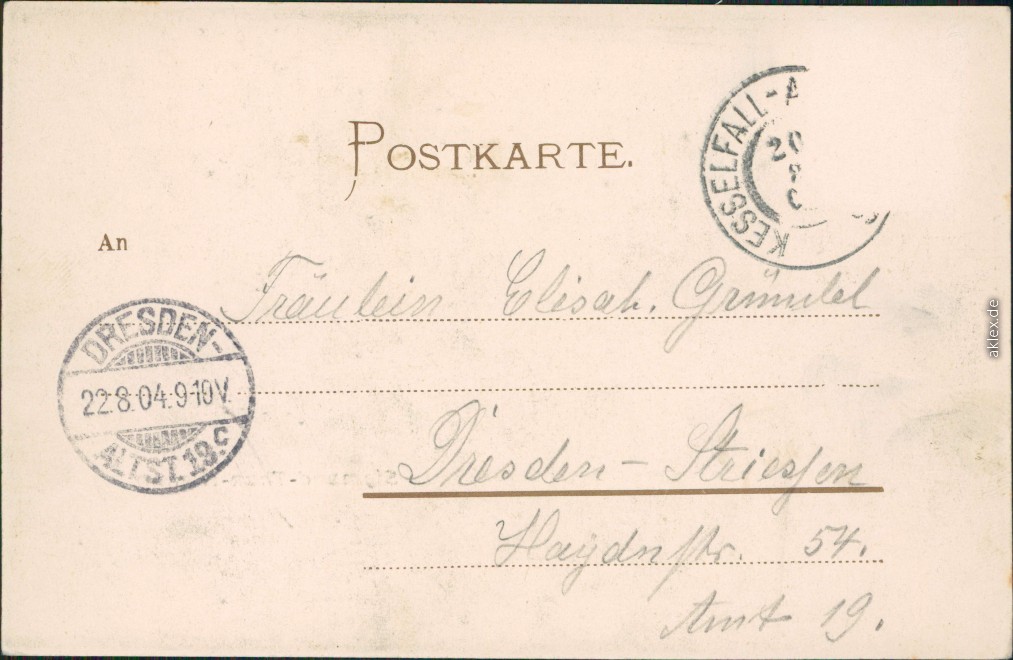 POSTKARTE.
KESSELFALL-A
20
An
Fräulein Elisab. Gründel
DRESDEN-
22.8.04.9-10V.
ALTST.18.c
Dresden - Striesen
Haydnstr. 54.
Amt 19.
aklex.de